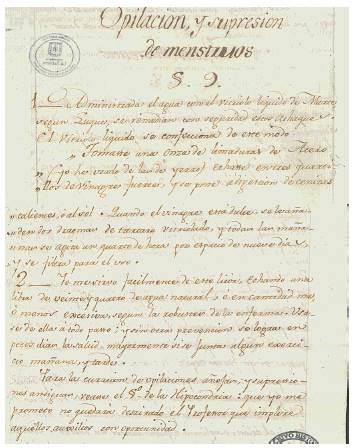 Opilacion, y supresion
de menstruos
§. 9.
1 Administrada el agua con el viticulo liquido de Marte
segun Luque, se remedian con seguridad estos achaques
El viticulo liquido se confecciona de este modo
" Tomase una onza de limaduras de Acero
" (yo he usado de las de yerro) echase en tres quarti-
" llos de vinagre fuerte, y se pone a digestion de cenizas
" calientes, o al sol. Quando el vinagre esta dulce, se le aña-
" den dos dragmas de tartaro vitriolado, y todas las maña-
nas se agita un quarto de hora por espacio de nueve dias
y se filtra para el uso.
2 de este echando una
libra de veinte y quatro de agua natural, o en cantidad mas
o menos excesiva segun la robustez de la enferma. Usa-
se de ella a todo pasto; y sin otra prevencion se logra
la salud, mayormente si se junta algun exerci-
cio mañana, y tarde.
Para la curacion de opilaciones añejas, y supresio-
nes antiguas, vease el §. de la Hipocondria: que yo me
prometo no quedara desairado el Profesor que implore
aquellos auxilios con oportunidad.